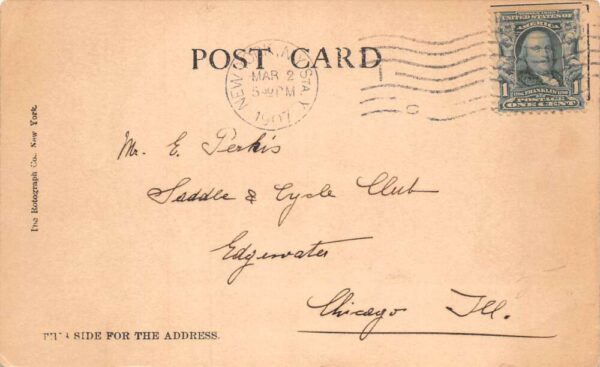 POST CARD
UNITED STATES OF
AMERICA
FRANKLIN
1 POSTAGE 1
ONE CENT
NEW STA.
MAR 2
PM
1907
C
Mr. E. Perkis
Saddle & Cycle Club
Edgewater
Chicago Ill.
The Rotograph Co., New York.
SIDE FOR THE ADDRESS.